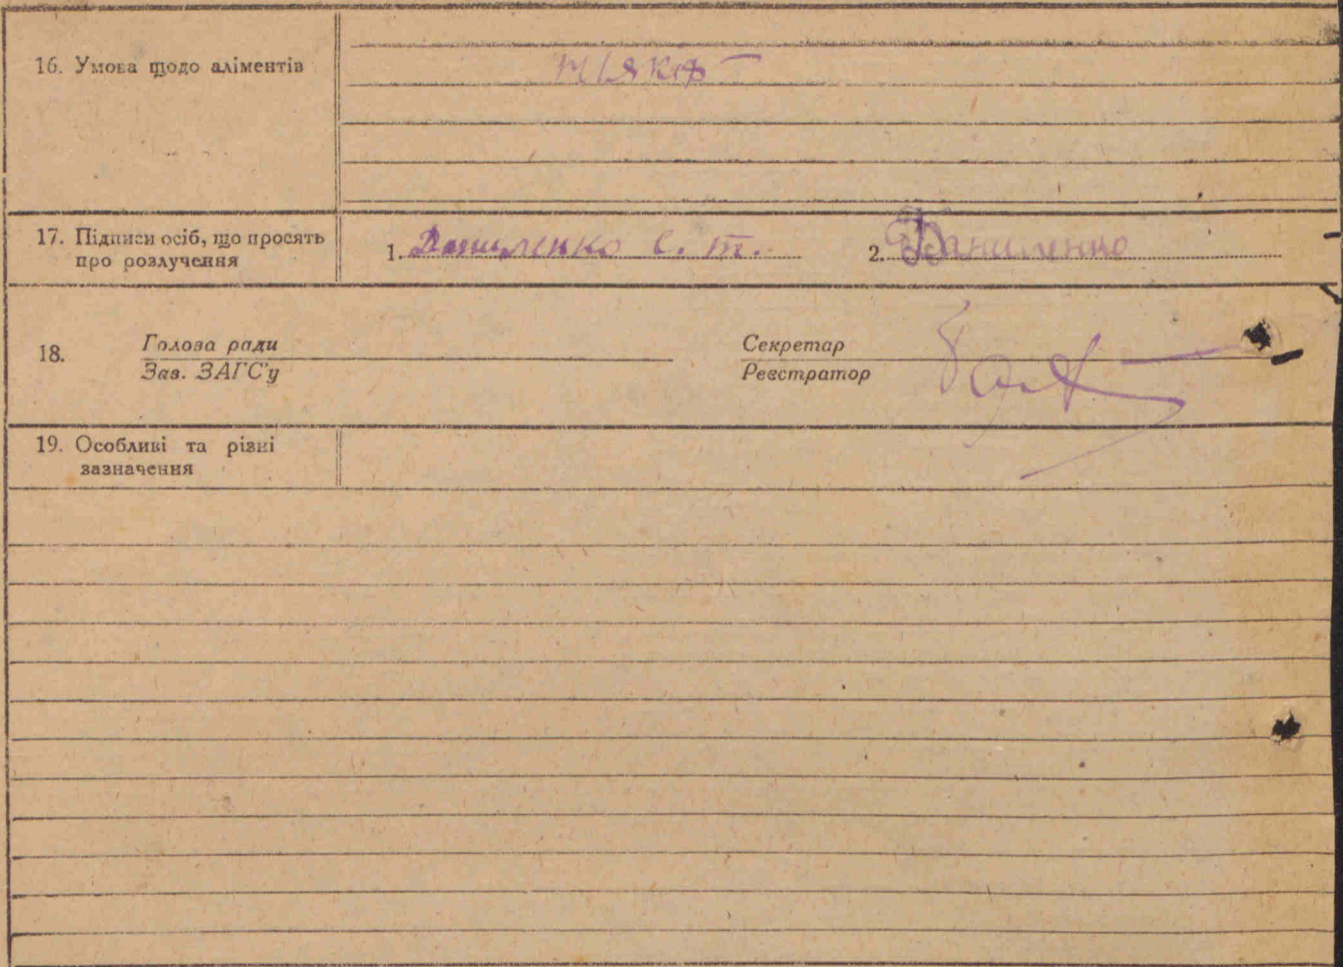 16. Умова щодо аліментів
ніякої
17. Підписи осіб, що просять
про розлучення
1. Даниленко Є. т. 2. Даниленко
18.
Голова ради
Зав. ЗАГС'у
Секретар
Реєстратор
19. Особливі та різні
зазначення